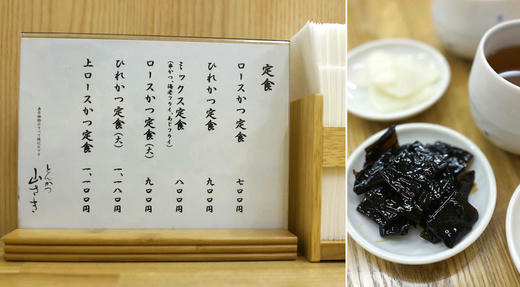 定食
ロースかつ定食 七〇〇円
ひれかつ定食 九〇〇円
ミックス定食 八〇〇円
(串かつ、海老フライ、あじフライ)
ロースかつ定食(大) 九〇〇円
ひれかつ定食(大) 一、一八〇円
上ロースかつ定食 一、一〇〇円
とんかつ
山さき